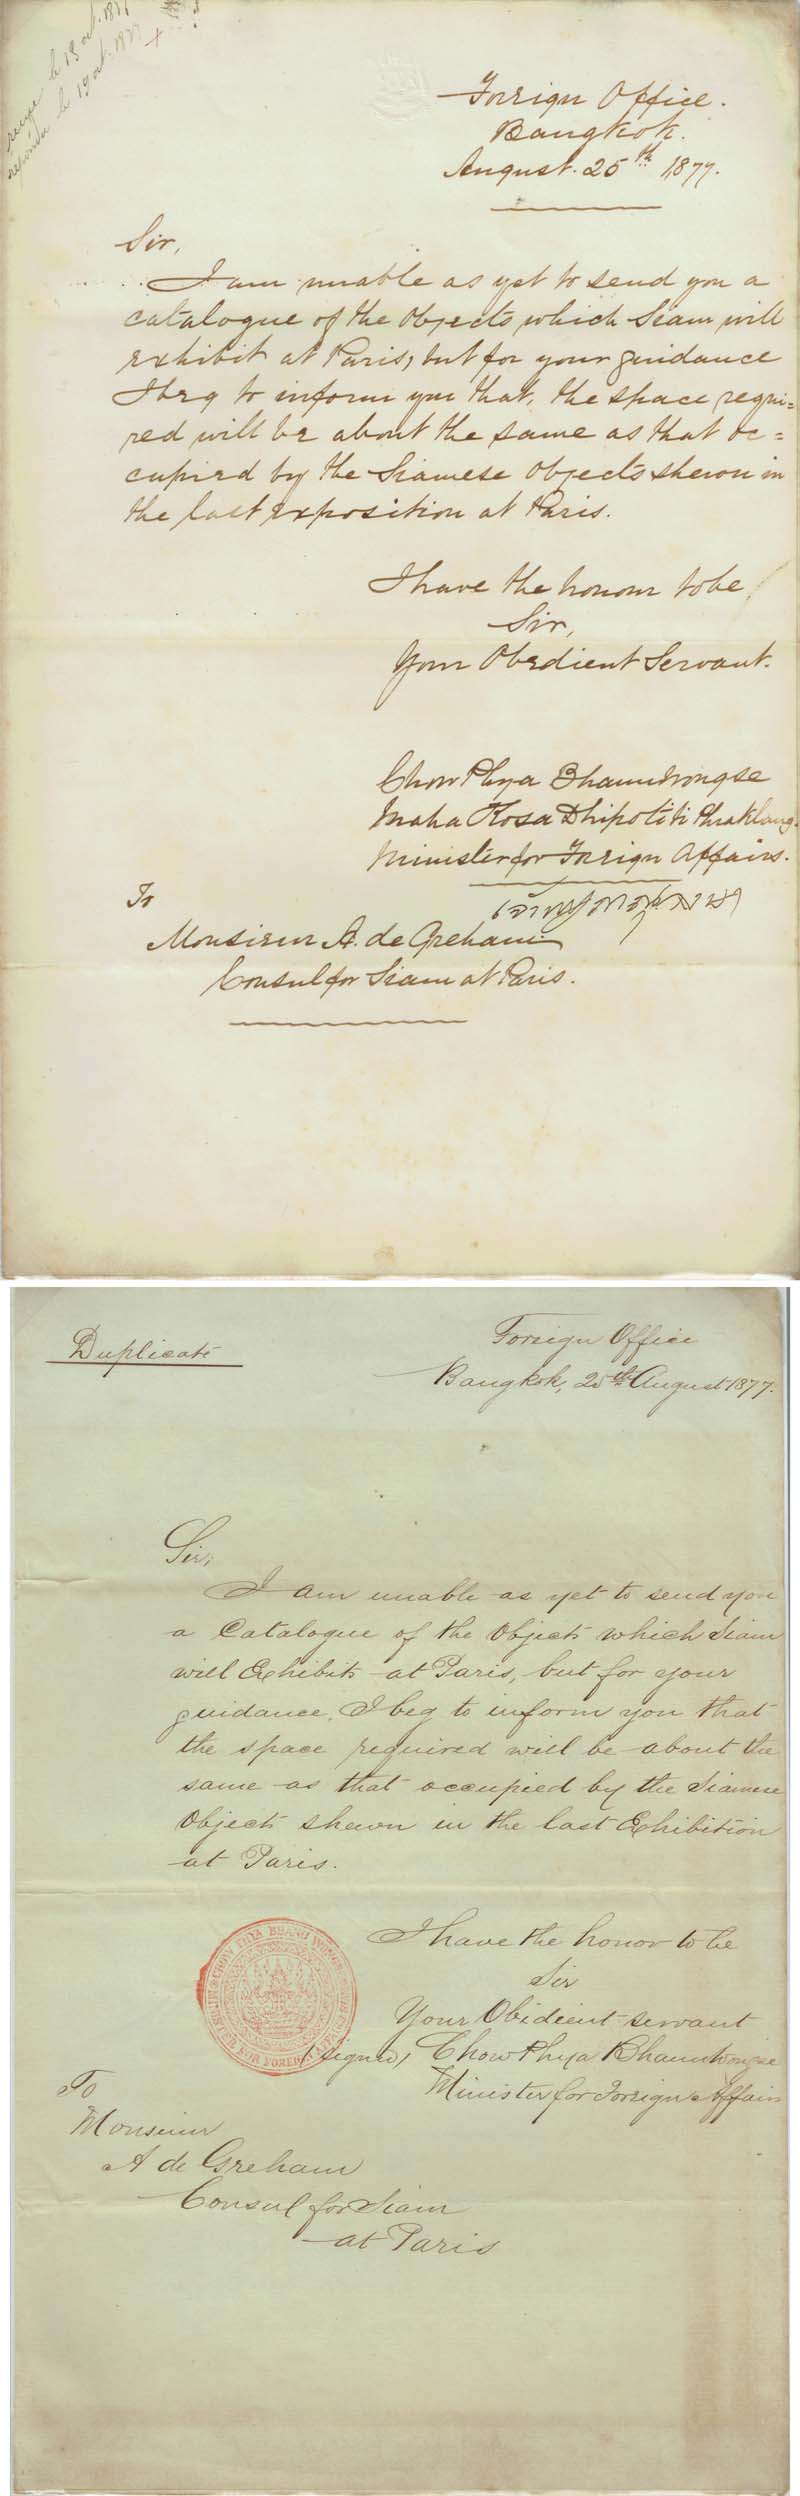 reçue le 13 oct. 1877
répondu le 19 oct. 1877
Foreign Office.
Bangkok.
August. 25th 1877.
Sir,
I am unable as yet to send you a
catalogue of the Objects which Siam will
exhibit at Paris, but for your guidance
I beg to inform you that, the space requi=
red will be about the same as that oc=
cupied by the Siamese Objects shewn in
the last exposition at Paris.
I have the honour to be
Sir,
Your Obedient Servant.
Chow Phya Bhanuwongse
Maha Kosa Dhipotiti Phraklang.
Minister for Foreign Affairs.
To
Monsieur A. de Greham
Consul for Siam at Paris.
Duplicate
Foreign Office
Bangkok, 25th August 1877.
Sir,
I am unable as yet to send you
a Catalogue of the Objects which Siam
will Exhibits at Paris, but for your
guidance, I beg to inform you that
the space required will be about the
same as that occupied by the Siamese
Objects shewn in the last Exhibition
at Paris.
I have the honor to be
Sir
Your Obidient servant
(signed) Chow Phya Bhanuwongse
Minister for Foreign Affairs
To
Monsieur
A de Greham
Consul for Siam
at Paris